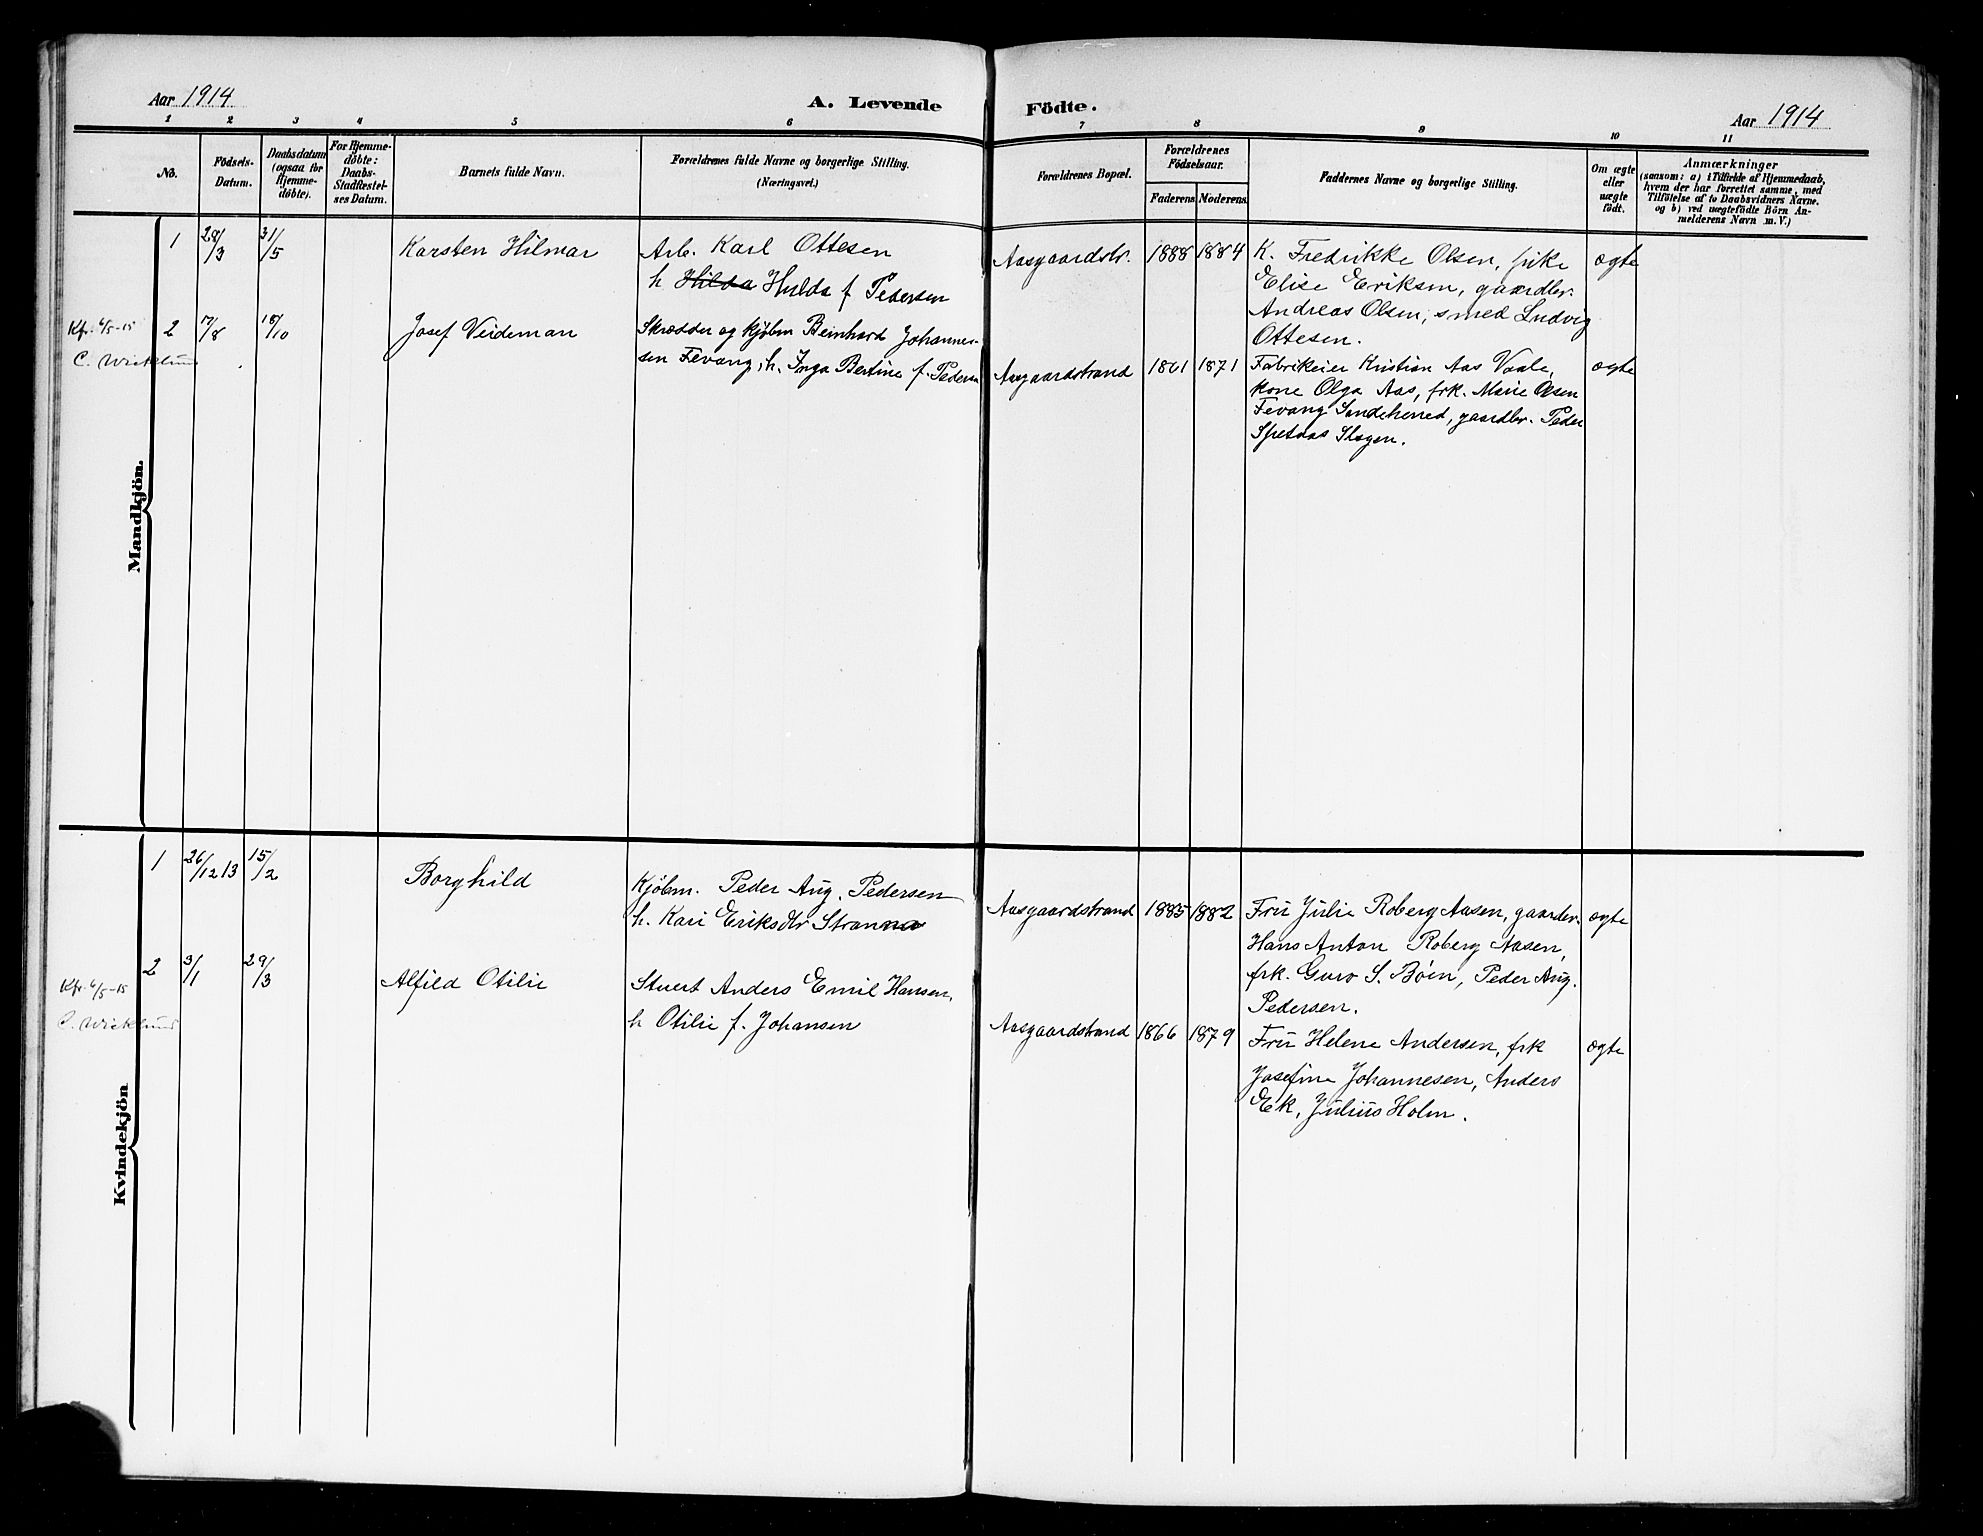 Aar 1914
A. Levende Födte.
Aar 1914
1 2 3 4 5 6 7 8 9 10 11
No.
Födsels-
Datum.
Daabsdatum
(ogsaa for
Hjemme-
döbte).
For Hjemme-
döbte:
Daabs-
Stadfæstel-
ses Datum.
Barnets fulde Navn.
Forældrenes fulde Navne og borgerlige Stilling.
(Næringsvei.)
Forældrenes Bopæl.
Forældrenes
Födselsaar.
Faderens Moderens
Faddernes Navne og borgerlige Stilling.
Om ægte
eller
uægte
födt.
Anmærkninger
(saasom: a) i Tilfælde af Hjemmedaab,
hvem der har forrettet samme, med
Tilföielse af to Daabsvidners Navne.
og b) ved uægtefödte Börn An-
melderens Navn m. V.)
Mandkjön.
1 28/3 31/5 Karsten Hilmar
Arb. Karl Ottesen
h. Hilda Hulda f Pedersen
Aasgaardstr. 1888 1884
K. Fredrikke Olsen, pike
Elise Eriksen, gaardbr.
Andreas Olsen, smed Ludvig
Ottesen.
ægte
Kfr. 6/5-15
C. Wicklund
2 17/8 18/10 Josef Veideman
Skrædder og kjøbm Beinhard Johannes-
sen Fevang, h. Inga Bertine f. Pedersen
Aasgaardstrand 1861 1871
Fabrikeier Kristian Aas Vaale,
kone Olga Aas, frk. Marie Olsen
Fevang Sandeherred, gaardbr. Peder
Spetaas Slagen.
ægte
Kvindekjön
1 26/12 13 15/2 Borghild
Kjøbm. Peder Aug. Pedersen
h. Kari Eriksdtr Stranna
Aasgaardstrand 1885 1882
Fru Julie Roberg Aasen, gaardbr.
Hans Anton Roberg Aasen,
frk. Guro S. Bøen, Peder Aug.
Pedersen.
ægte
Kfr. 6/5-15
C. Wicklund
2 3/1 29/3 Alfild Otilie
Stuert Anders Emil Hansen,
h Otilie f. Johansen
Aasgaardstrand 1866 1879
Fru Helene Andersen, frk
Josefine Johannesen, Anders
Ek, Julius Holm.
ægte